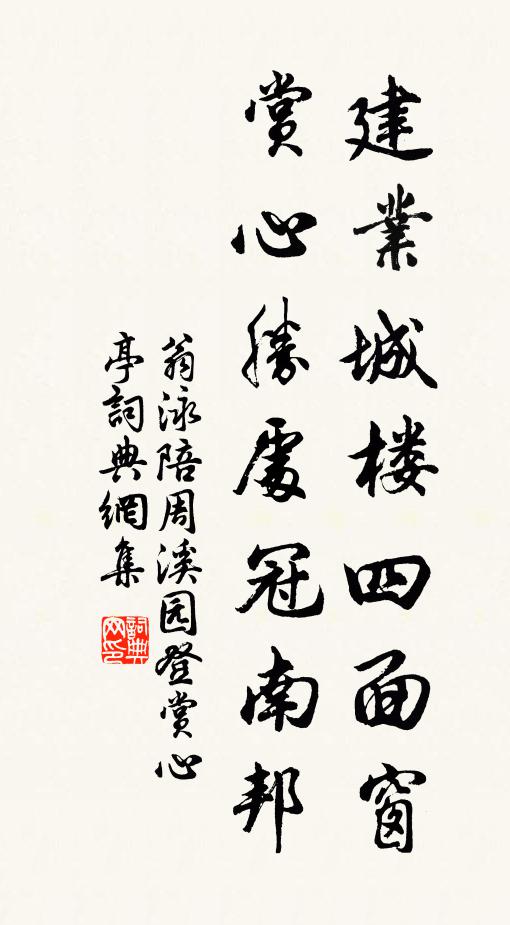 建業城楼四面窗
賞心勝處冠南邦
翁泳陪周溪园登賞心
亭詞典網集
詞典网印